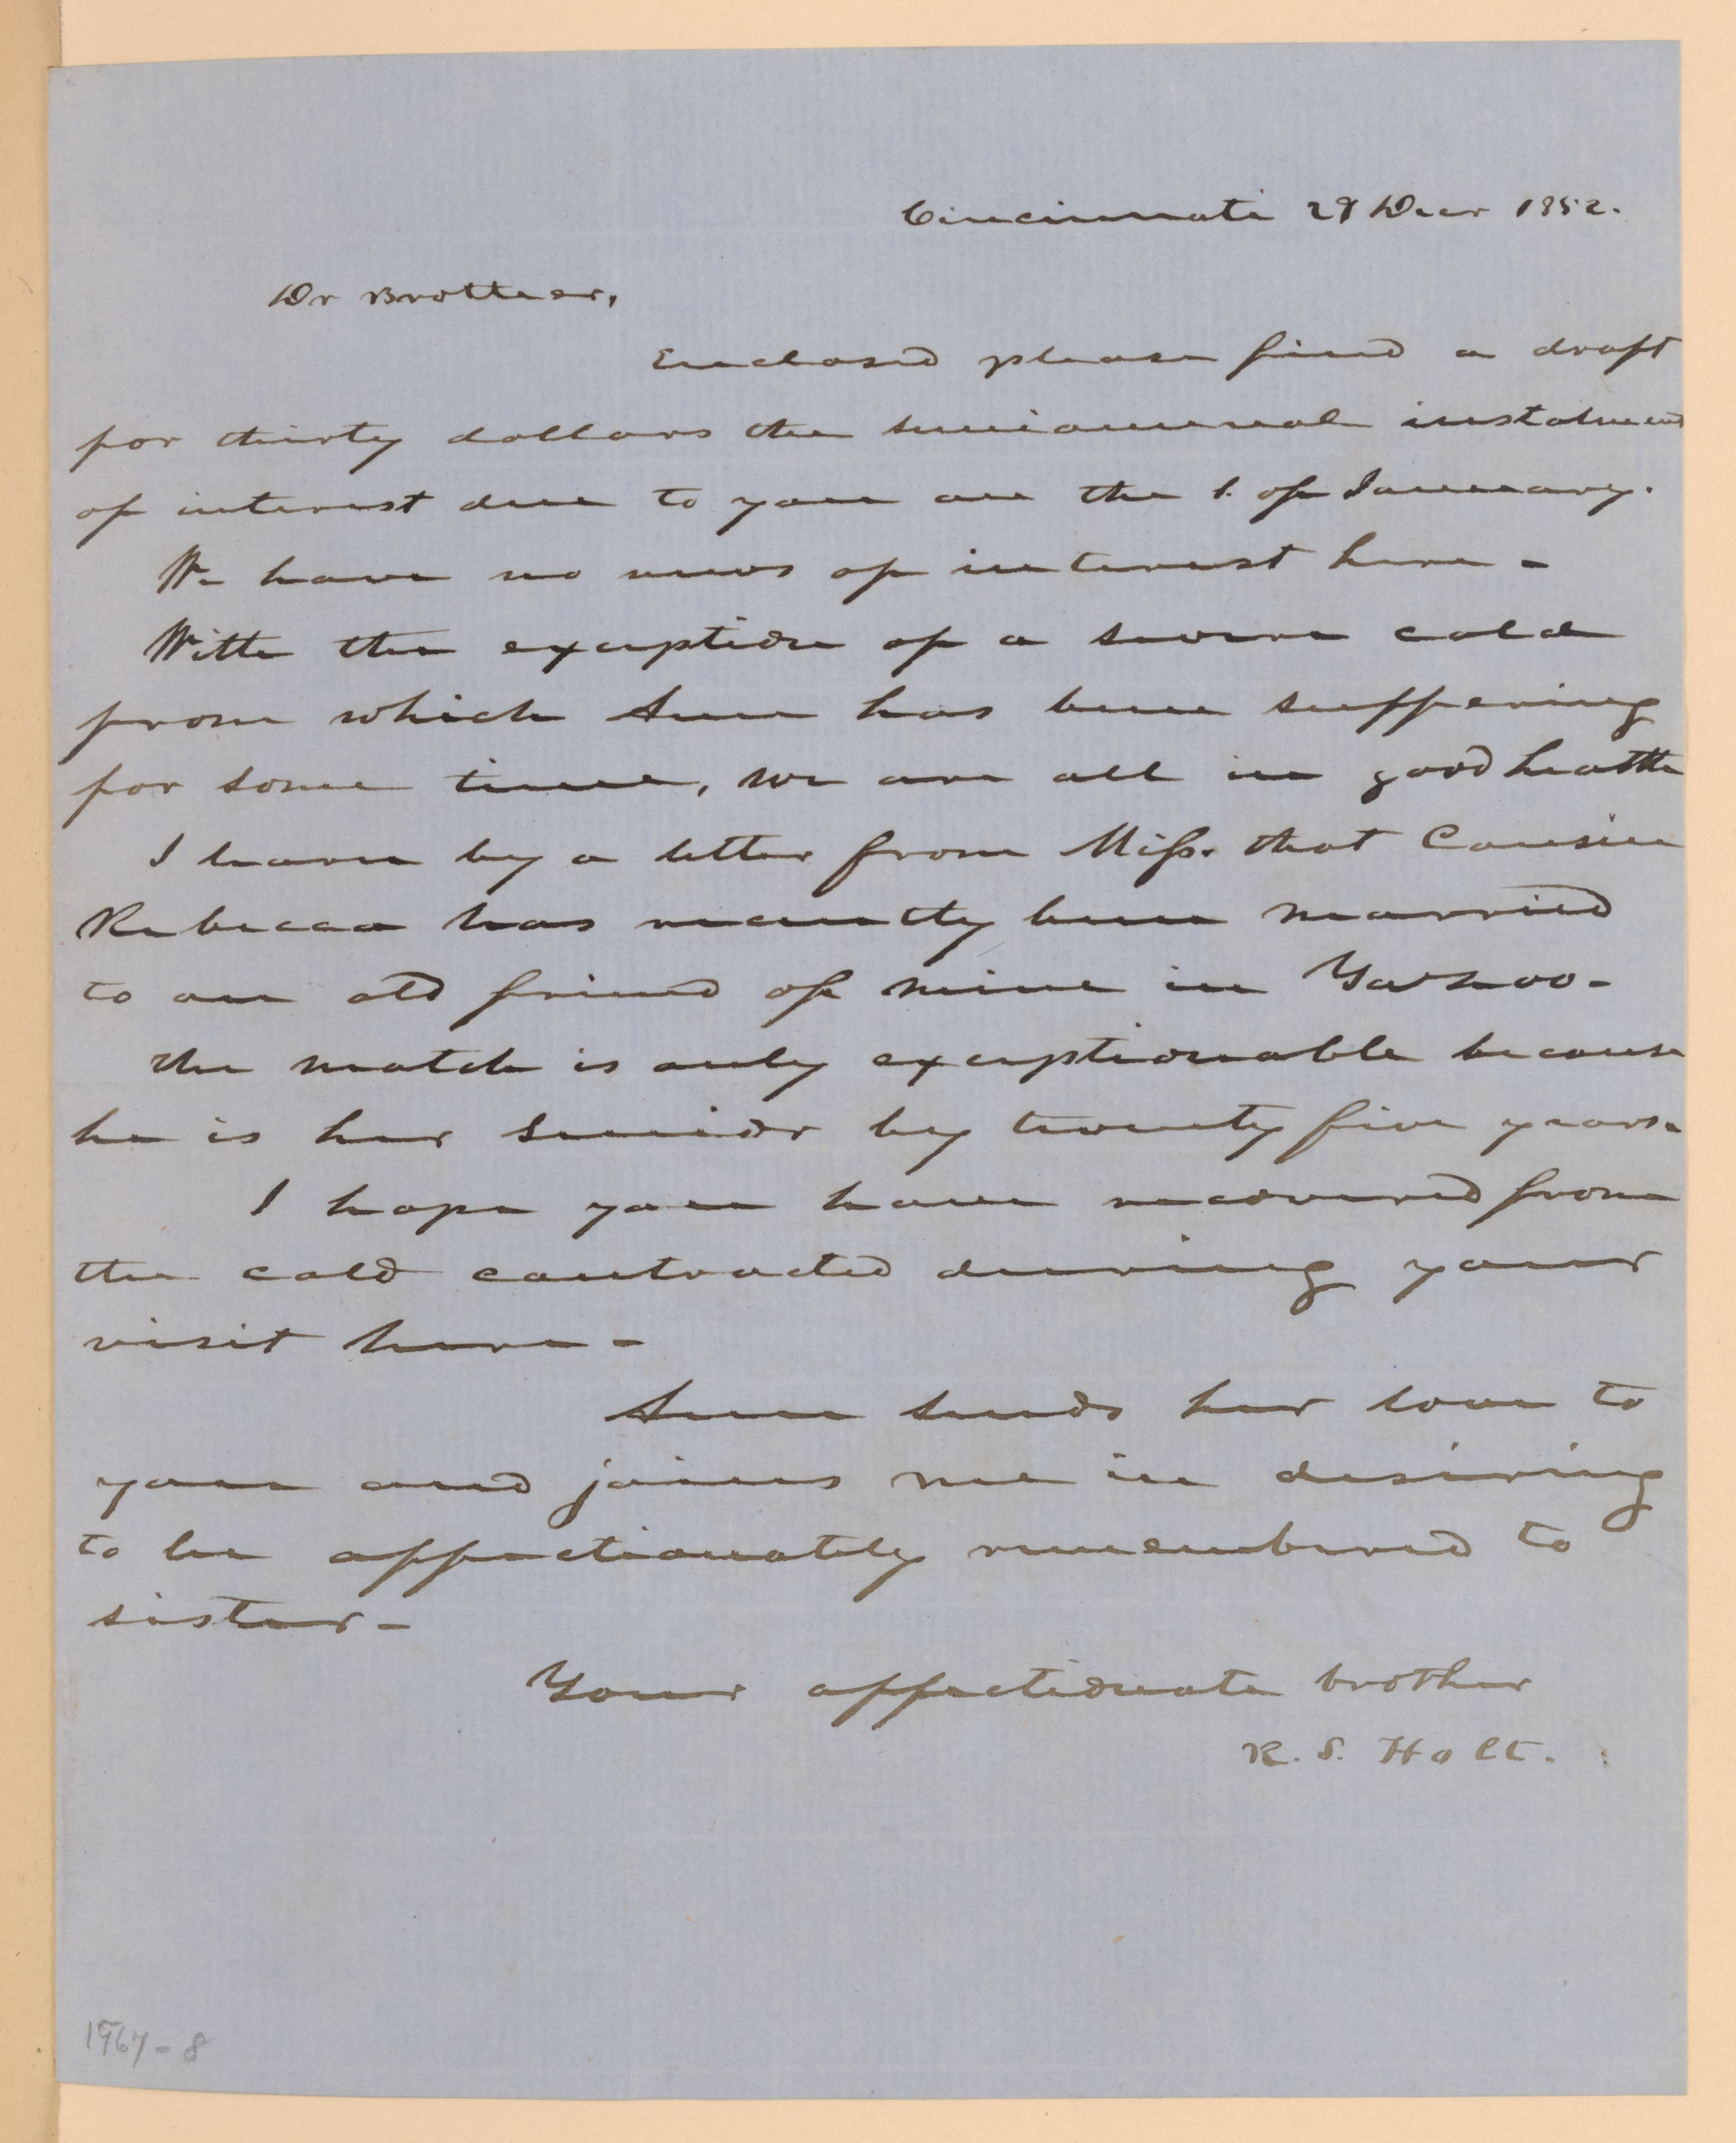 Cincinnati 29 Decr 1852.
Dr Brother,
Enclosed please find a draft
for thirty dollars the semiannual instalment
of interest due to you on the 1. of January.
We have no news of interest here -
With the exception of a severe cold
from which Ann has been suffering
for some time, we are all in good health
I learn by a letter from Miss. that Cousin
Rebecca has recently been married
to an old friend of mine in Yazoo -
The match is only exceptionable because
he is her senior by twenty five years.
I hope you have recovered from
the cold contracted during your
visit here -
Ann sends her love to
you and joins me in desiring
to be affectionately remembered to
sister -
Your affectionate brother
R. S. Holt.
1967-8